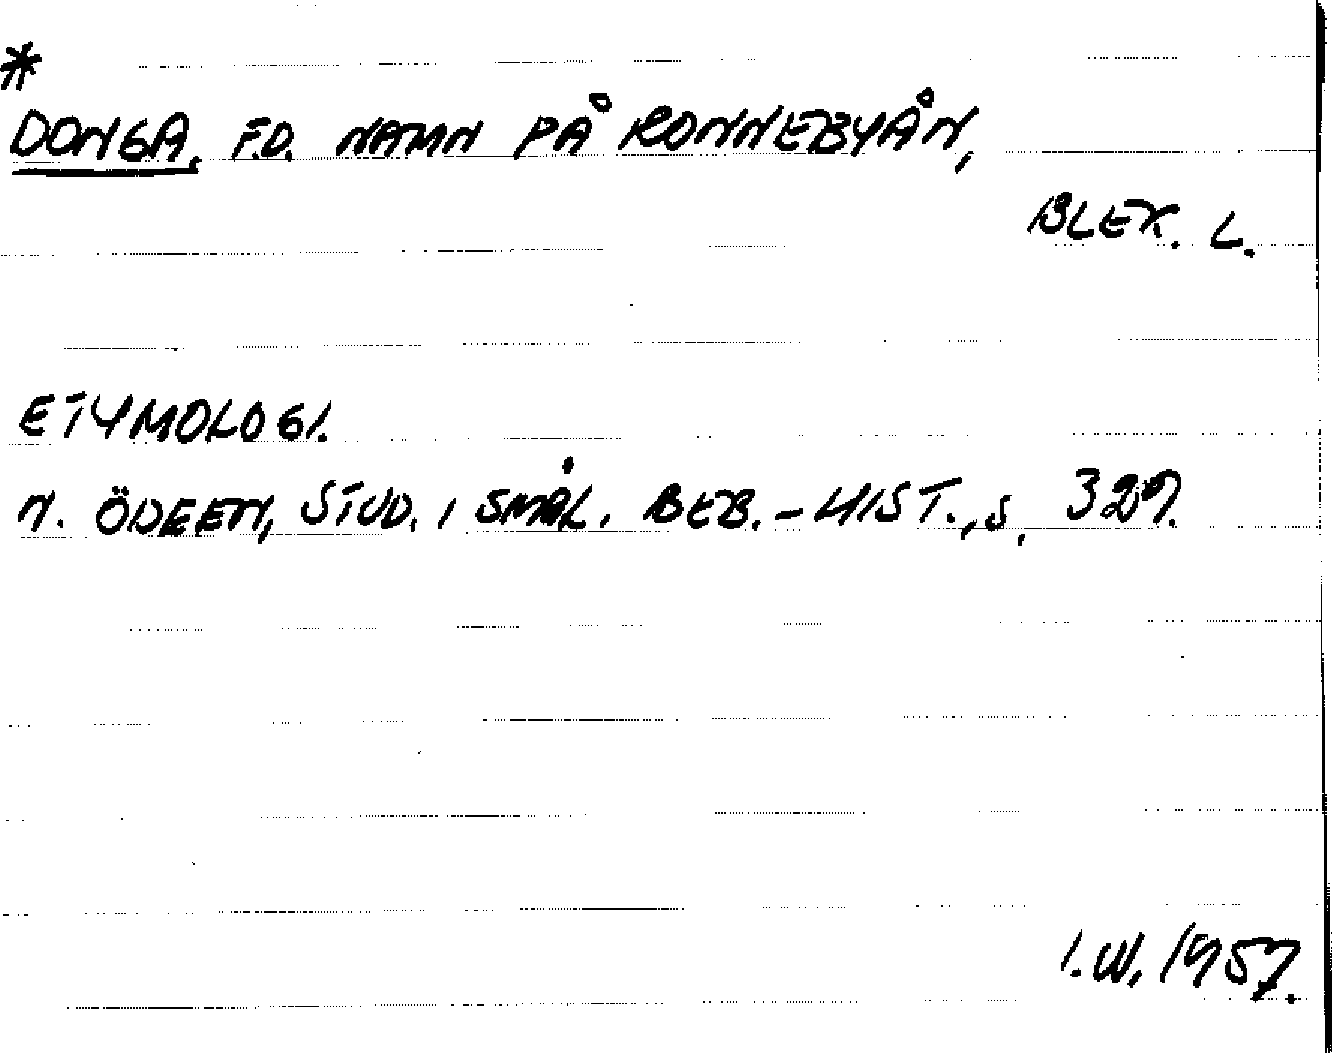 *
DONGA, F.D. NAMN PÅ RONNEBYÅN,
BLEK. L.
ETYMOLOGI.
N. ÖDEEN, STUD. I SMÅL. BEB.-HIST., S. 327.
I.W. 1957.